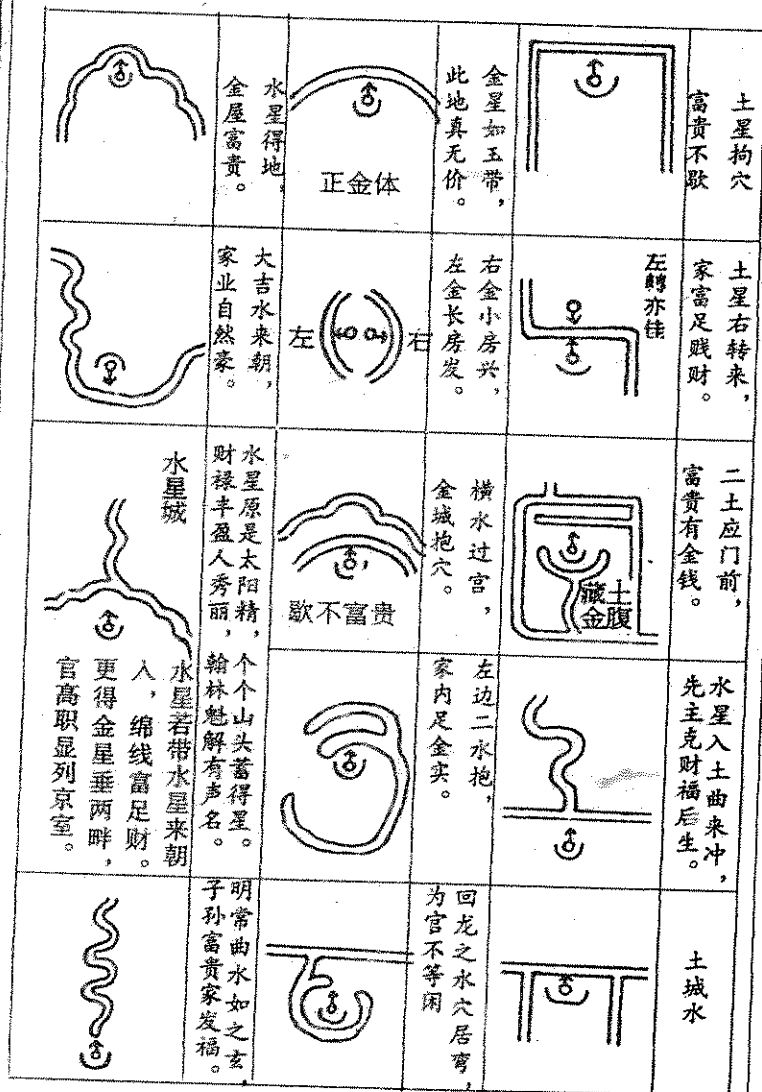 土星拘穴
富贵不歇
金星如玉带，
此地真无价。
正金体
水星得地，
金屋富贵。
土星右转来，
家富足贱财。
左转亦佳
右金小房兴，
左金长房发。
左
右
大吉水来朝，
家业自然豪。
二土应门前，
富贵有金钱。
藏土
金腹
横水过宫，
金城抱穴。
歇不富贵
水星原是太阳精，个个山头蓄得星。
财禄丰盈人秀丽，翰林魁解有声名。
水星城
水星若带水星来朝
入，绵线富足财。
更得金星垂两畔，
官高职显列京室。
水星入土曲来冲，
先主克财福后生。
左边二水抱，
家内足金实。
土城水
回龙之水穴居弯，
为官不等闲
明常曲水如之玄，
子孙富贵家发福。